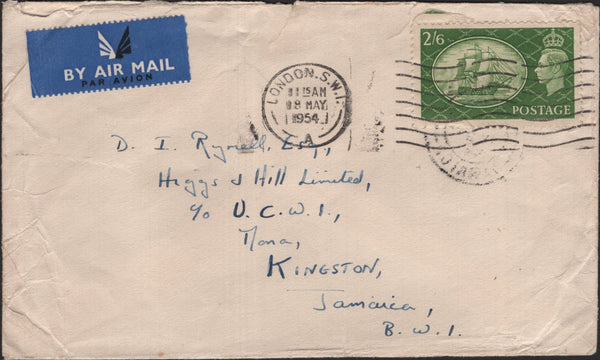 BY AIR MAIL
PAR AVION
LONDON. S.W.1.
11 15 AM
8 MAY
1954
A
2/6
POSTAGE
D. I. Rynell, Esq.,
Higgs & Hill Limited,
c/o U.C.W.I.,
Mona,
KINGSTON,
Jamaica,
B.W.I.